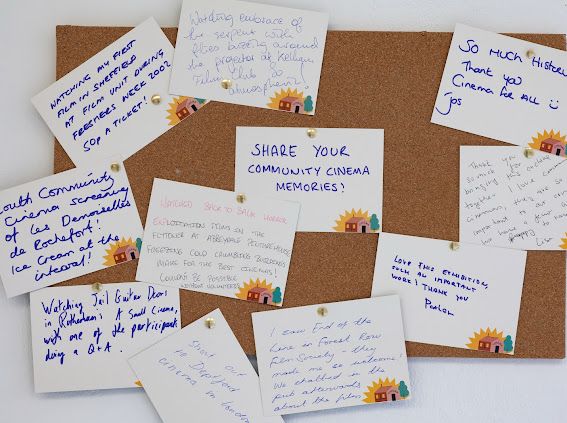 WATCHING MY FIRST
FILM IN SHEFFIELD
AT FILM UNIT DURING
FRESHERS WEEK 2002
50P A TICKET!
Watching embrace of
the serpent with
flies buzzing around
the projector at
Film Club. So
atmospheric!
SO MUCH History
Thank you
Cinema For ALL
Jos
SHARE YOUR
COMMUNITY CINEMA
MEMORIES!
South Community
Cinema screening
of Les Demoiselles
de Rochefort!
Ice Cream at the
interval!
WATCHED BACK TO BACK HORROR
EXPLOITATION FILMS ON THE
7TH FLOOR AT ABBEYDALE PICTUREHOUSE
FREEZING COLD CRUMBLING BUILDINGS
MAKE FOR THE BEST CINEMAS!
COULDN'T BE POSSIBLE
WITHOUT VOLUNTEERS!
Thank you
so much for
bringing this
together. I love community
cinemas, they are so
important to our
Lisa
LOVE THIS EXHIBITION,
SUCH AN IMPORTANT
WORK! THANK YOU
Watching Jail Guitar Doors
in Rotherham's A Small Cinema,
with one of the participants
doing a Q+A.
Shout out
to Deptford
cinema in London
I saw End of the
Line in Forest Row
Film Society - they
made me so welcome!
We chatted in the
pub afterwards
about the film